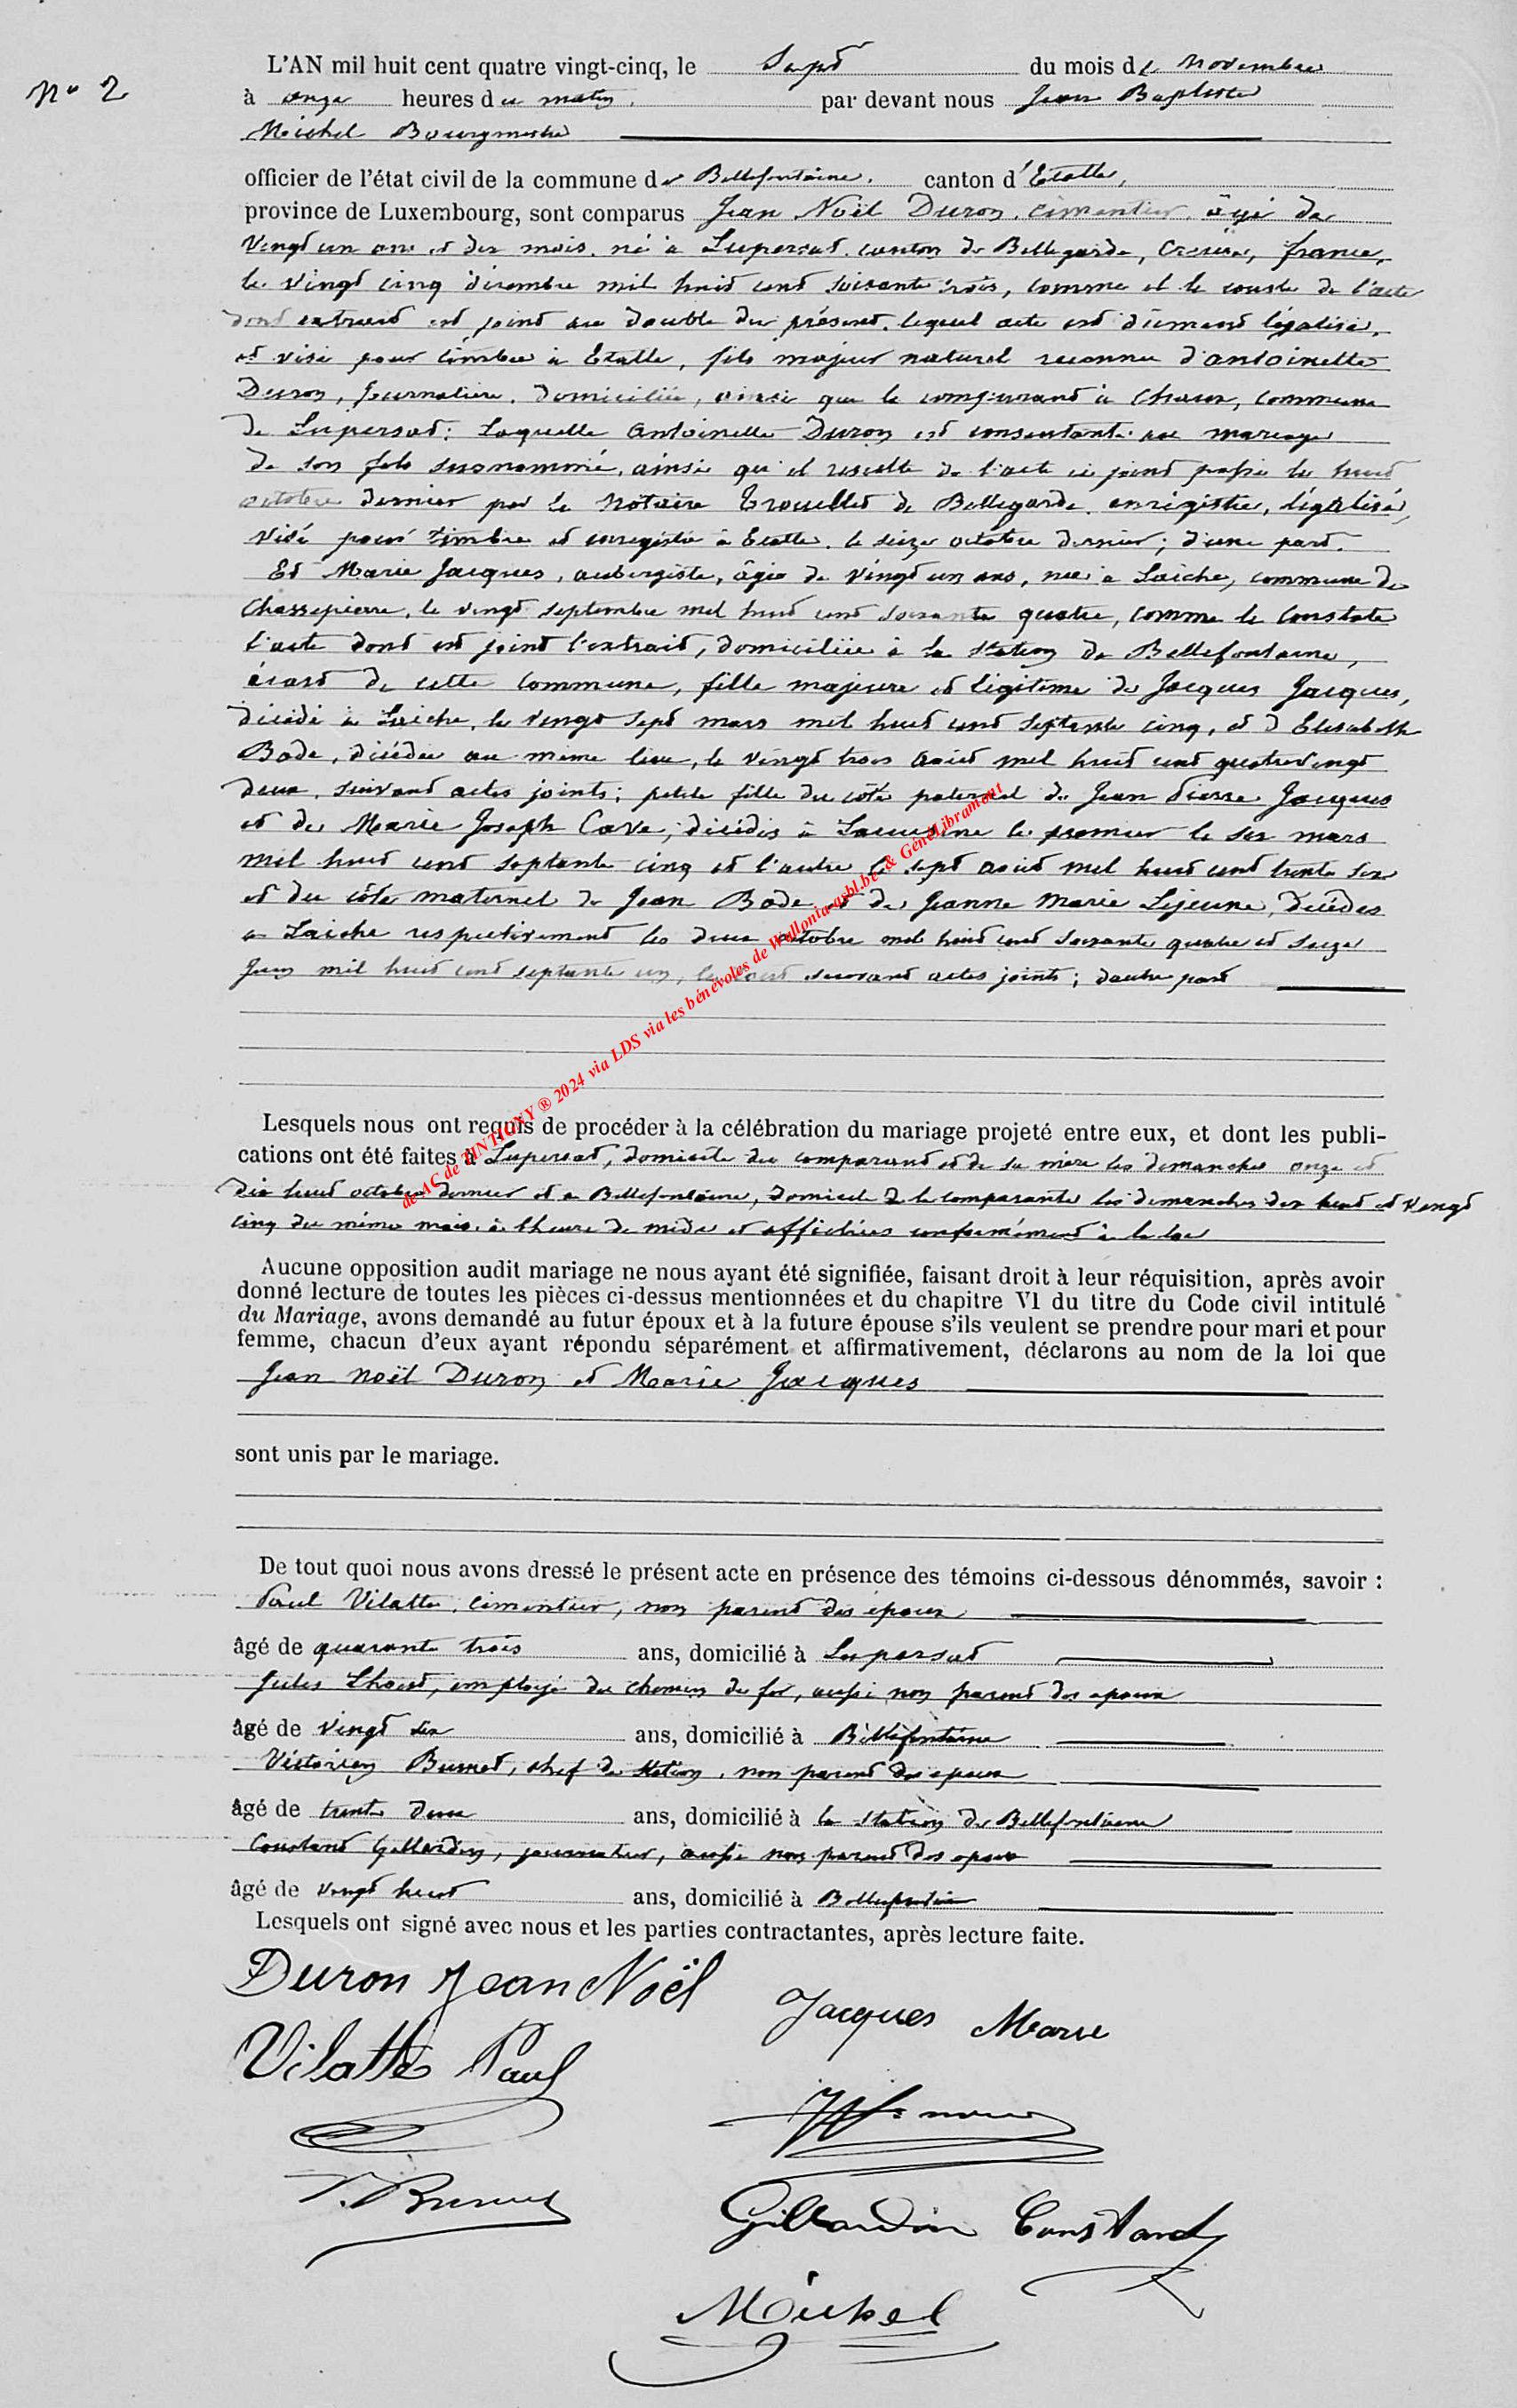 N° 2
L'AN mil huit cent quatre vingt-cinq, le Sept du mois de Novembre
à onze heures du matin, par devant nous Jean Baptiste
Michel Bourgmestre
officier de l'état civil de la commune de Bellefontaine, canton d'Etalle,
province de Luxembourg, sont comparus Jean Noël Duron, cimentier, âgé de
vingt un ans et dix mois, né à Lupersat, canton de Bellegarde, Creuse, france,
le vingt cinq décembre mil huit cent soixante trois, comme il le conste de l'acte
dont extrait est joint au double du présent, lequel acte est dûment légalisé,
et visé pour timbre à Etalle, fils majeur naturel reconnu d'antoinette
Duron, journalière, domiciliée, ainsi que le comparant à commune
de Lupersat; Laquelle Antoinette Duron est consentante au mariage
de son fils susnommé, ainsi qu'il résulte de l'acte ci joint passé le huit
octobre dernier par le Notaire de Bellegarde, enrégistré, légalisé,
visé pour timbre et enregistré à Etalle, le seize octobre dernier; d'une part.
Et Marie Jacques, aubergiste, âgée de vingt un ans, née à Laiche, commune de
Chassepierre, le vingt septembre mil huit cent soixante quatre, comme le constate
l'acte dont est joint l'extrait, domiciliée à la station de Bellefontaine,
écart de cette commune, fille majeure et légitime de Jacques Jacques,
décédé à Laiche, le vingt sept mars mil huit cent septante cinq, et d'Elisabeth
Bode, décédée au même lieu, le vingt trois août mil huit cent quatre vingt
deux, suivant actes joints; petite fille du côté paternel de Jean Pierre Jacques
et de Marie Joseph Cave, décédés à le premier le six mars
mil huit cent septante cinq et l'autre le sept août mil huit cent trente six
et du côté maternel de Jean Bode et de Jeanne Marie Lejeune, décédés
à Laiche respectivement les deux octobre mil huit cent soixante quatre et seize
Juin mil huit cent septante un, le tout suivant actes joints; d'autre part
Lesquels nous ont requis de procéder à la célébration du mariage projeté entre eux, et dont les publi-
cations ont été faites à Lupersat, domicile du comparant et de sa mère les dimanches onze et
dix huit octobre dernier et à Bellefontaine, domicile de la comparante les dimanches dix huit et vingt
cinq du même mois, à l'heure de midi et affichées conformément à la loi
Aucune opposition audit mariage ne nous ayant été signifiée, faisant droit à leur réquisition, après avoir
donné lecture de toutes les pièces ci-dessus mentionnées et du chapitre VI du titre du Code civil intitulé
du Mariage, avons demandé au futur époux et à la future épouse s'ils veulent se prendre pour mari et pour
femme, chacun d'eux ayant répondu séparément et affirmativement, déclarons au nom de la loi que
Jean Noël Duron et Marie Jacques
sont unis par le mariage.
De tout quoi nous avons dressé le présent acte en présence des témoins ci-dessous dénommés, savoir :
Paul Vilatte, cimentier, non parent des époux
âgé de quarante trois ans, domicilié à Lupersat
Jules employé du chemin de fer, aussi non parent des époux
âgé de vingt six ans, domicilié à Bellefontaine
Victorien chef de station, non parent des époux
âgé de trente deux ans, domicilié à la station de Bellefontaine
Constant Gillardin, journalier, aussi non parent des époux
âgé de vingt huit ans, domicilié à Bellefontaine
Lesquels ont signé avec nous et les parties contractantes, après lecture faite.
Duron Jean Noël
Jacques Marie
Vilatte Paul
Gillardin Constant
Michel
de AC de TINTIGNY ® 2024 via LDS via les bénévoles de Wallonia-asbl.be & GénéLibramont